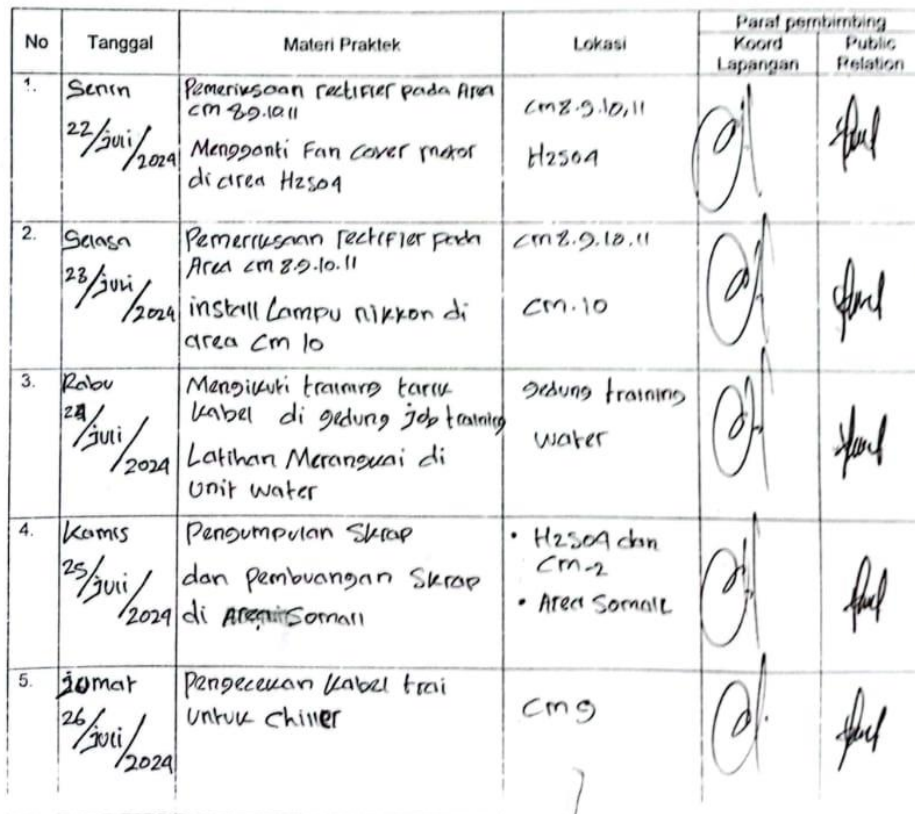 No Tanggal Materi Praktek Lokasi Paraf pembimbing
Koord Lapangan Public Relation
1. Senin 22/juli/2024
Pemeriksaan rectifier pada Area
cm 8.9.10.11
Mengganti Fan cover motor
di area H2SO4
cm 8.9.10,11
H2SO4
2. Selasa 23/juli/2024
Pemeriksaan rectifier pada
Area cm 8.9.10.11
install Lampu nikkon di
area Cm 10
cm 8.9.10.11
cm.10
3. Rabu 24/juli/2024
Mengikuti training tarik
kabel di gedung job training
Latihan Merangkai di
Unit water
gedung training
water
4. Kamis 25/juli/2024
Pengumpulan Skrap
dan Pembuangan Skrap
di Area Somali
• H2SO4 dan
Cm-2
• Area Somali
5. jumat 26/juli/2024
Pengecekan Kabel trai
untuk Chiller
cm 9